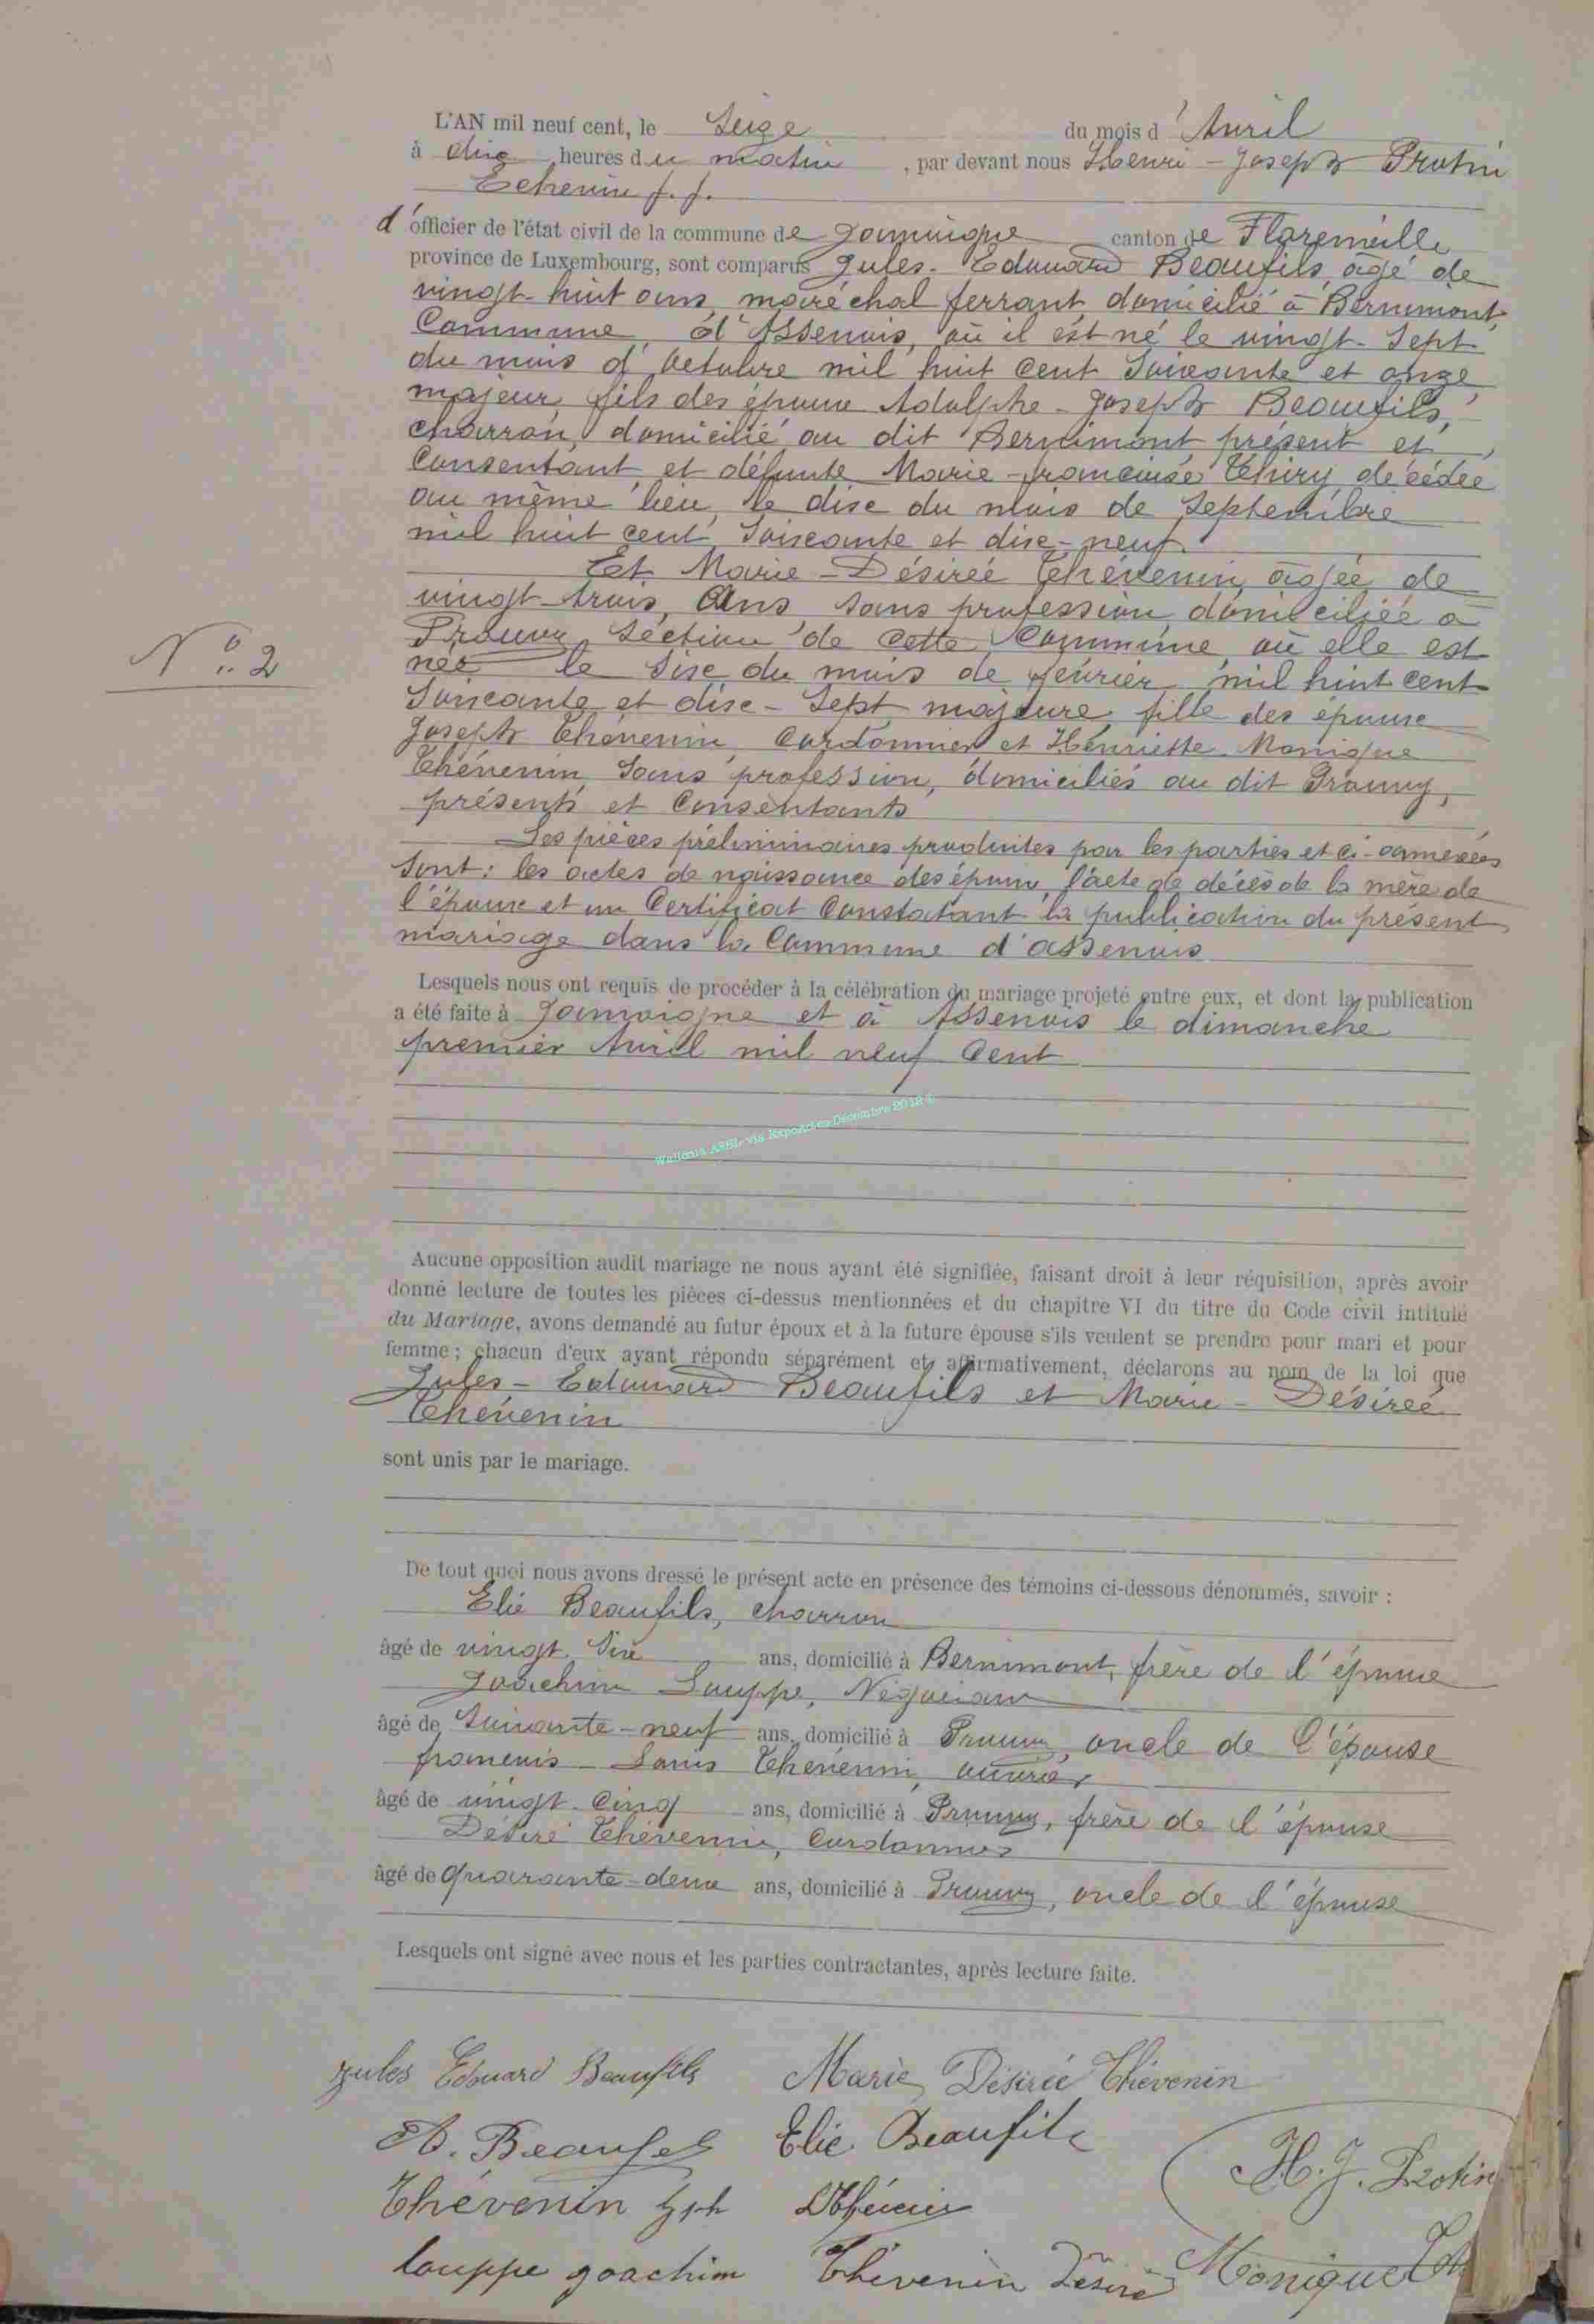 L'AN mil neuf cent, le Seize du mois d'Avril
à dix heures du matin, par devant nous Henri-Joseph Protin
Echevin f.f.
d'officier de l'état civil de la commune de Jamoigne canton de Florenville
province de Luxembourg, sont comparus Jules-Edouard Beaufils, âgé de
vingt-huit ans maréchal ferrant, domicilié à Bernimont,
Commune d'Assenois, où il est né le vingt-Sept
du mois d'octobre mil huit Cent Soixante et onze
majeur, fils des époux Adolphe-Joseph Beaufils,
charron, domicilié au dit Bernimont, présent et
Consentant et défunte Marie-françoise Thiry, décédée
au même lieu, le dix du mois de Septembre
mil huit cent Soixante et dix-neuf.
Et Marie-Désireé Thévenin, âgée de
vingt-trois Ans sans profession domiciliée à
Prouvy Section de cette Commune, où elle est
née le Six du mois de février mil huit cent
Soixante et dix-Sept, majeure, fille des époux
Joseph Thévenin, Cordonnier et Henriette Monique
Thévenin, Sans profession, domiciliés au dit Prouvy,
présents et Consentants
Les pièces préliminaires produites par les parties et ci-annexées
Sont: les actes de naissance des époux, l'acte de décès de la mère de
l'époux et un Certificat Constatant la publication du présent
mariage dans la Commune d'assenois
Lesquels nous ont requis de procéder à la célébration du mariage projeté entre eux, et dont la publication
a été faite à Jamoigne et à Assenois le dimanche
premier Avril mil neuf Cent
Wallonia ASBL via ExpoActes Décembre 2018 ©
Aucune opposition audit mariage ne nous ayant été signifiée, faisant droit à leur réquisition, après avoir
donné lecture de toutes les pièces ci-dessus mentionnées et du chapitre VI du titre du Code civil intitulé
du Mariage, avons demandé au futur époux et à la future épouse s'ils veulent se prendre pour mari et pour
femme; chacun d'eux ayant répondu séparément et affirmativement, déclarons au nom de la loi que
Jules-Edouard Beaufils et Marie-Désireé
Thévenin
sont unis par le mariage.
De tout quoi nous avons dressé le présent acte en présence des témoins ci-dessous dénommés, savoir :
Elie Beaufils, charron
âgé de vingt Six ans, domicilié à Bernimont, frère de l'époux
Joachim Louppe, Négociant
âgé de Soixante-neuf ans, domicilié à Prouvy, oncle de l'épouse
françois-Louis Thévenin, ouvrier
âgé de vingt-Cinq ans, domicilié à Prouvy, frère de l'épouse
Désiré Thévenin, Cordonnier
âgé de quarante-deux ans, domicilié à Prouvy, oncle de l'épouse
Lesquels ont signé avec nous et les parties contractantes, après lecture faite.
N° 2
Jules Edouard Beaufils Marie Désirée Thévenin
A. Beaufils Elie Beaufils
H.J. Protin
Thévenin Jph
Louppe Joachim Thévenin Désiré Monique